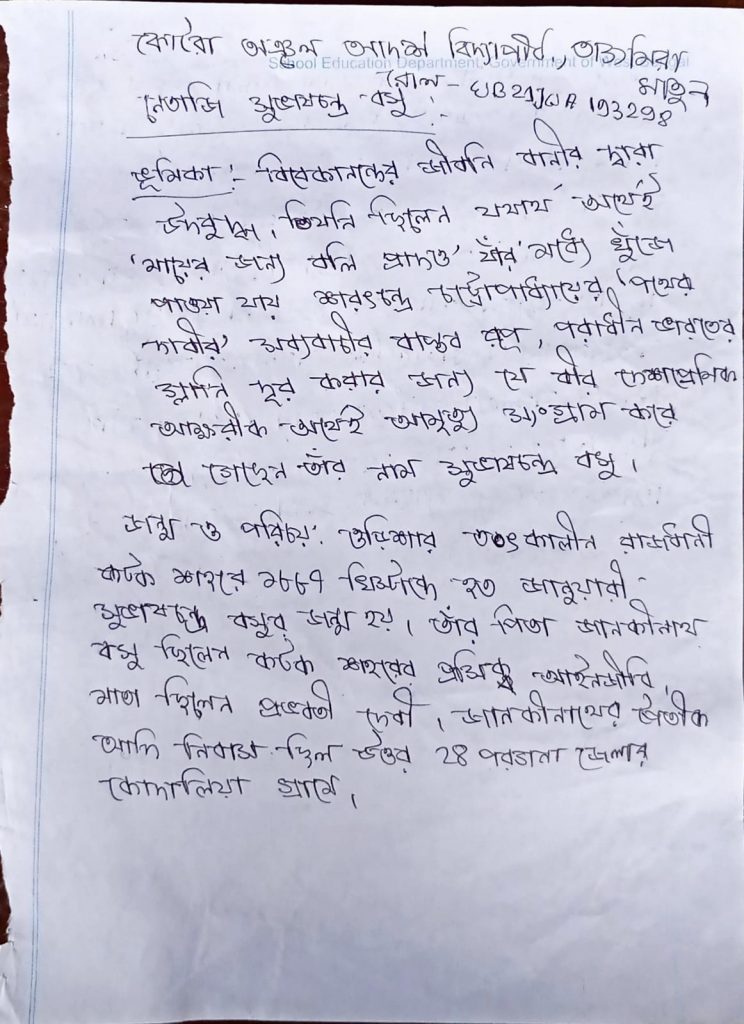 কোরো অঞ্চল আদর্শ বিদ্যাপীঠ, তাজমিরা
School Education Department, Government of West Bengal
খাতুন
রোল - WB21JWA193298
নেতাজি সুভাষচন্দ্র বসু
ভূমিকা :- বিবেকানন্দের জীবনি বানীর দ্বারা
উদবুদ্ধ, তিনি ছিলেন যথার্থ অর্থেই
'মায়ের জন্য বলি প্রদত্ত' যাঁর মধ্যে খুঁজে
পাওয়া যায় শরৎচন্দ্র চট্টোপাধ্যায়ের 'পথের
দাবীর' সব্যসাচীর বাস্তব রূপ, পরাধীন ভারতের
গ্লানি দূর করার জন্য যে বীর দেশপ্রেমিক
আক্ষরীক অর্থেই আমৃত্যু সংগ্রাম করে
গেছেন তাঁর নাম সুভাষচন্দ্র বসু।
জন্ম ও পরিচয়: ওড়িশার তৎকালীন রাজধানী
কটক শহরে ১৮৮৭ খ্রিস্টাব্দে ২৩ জানুয়ারী
সুভাষচন্দ্র বসুর জন্ম হয়। তাঁর পিতা জানকীনাথ
বসু ছিলেন কটক শহরের প্রসিদ্ধ আইনজীবি,
মাতা ছিলেন প্রভাবতী দেবী। জানকীনাথের পৈতীক
আদি নিবাস ছিল উত্তর 28 পরগানা জেলার
কোদালিয়া গ্রামে।